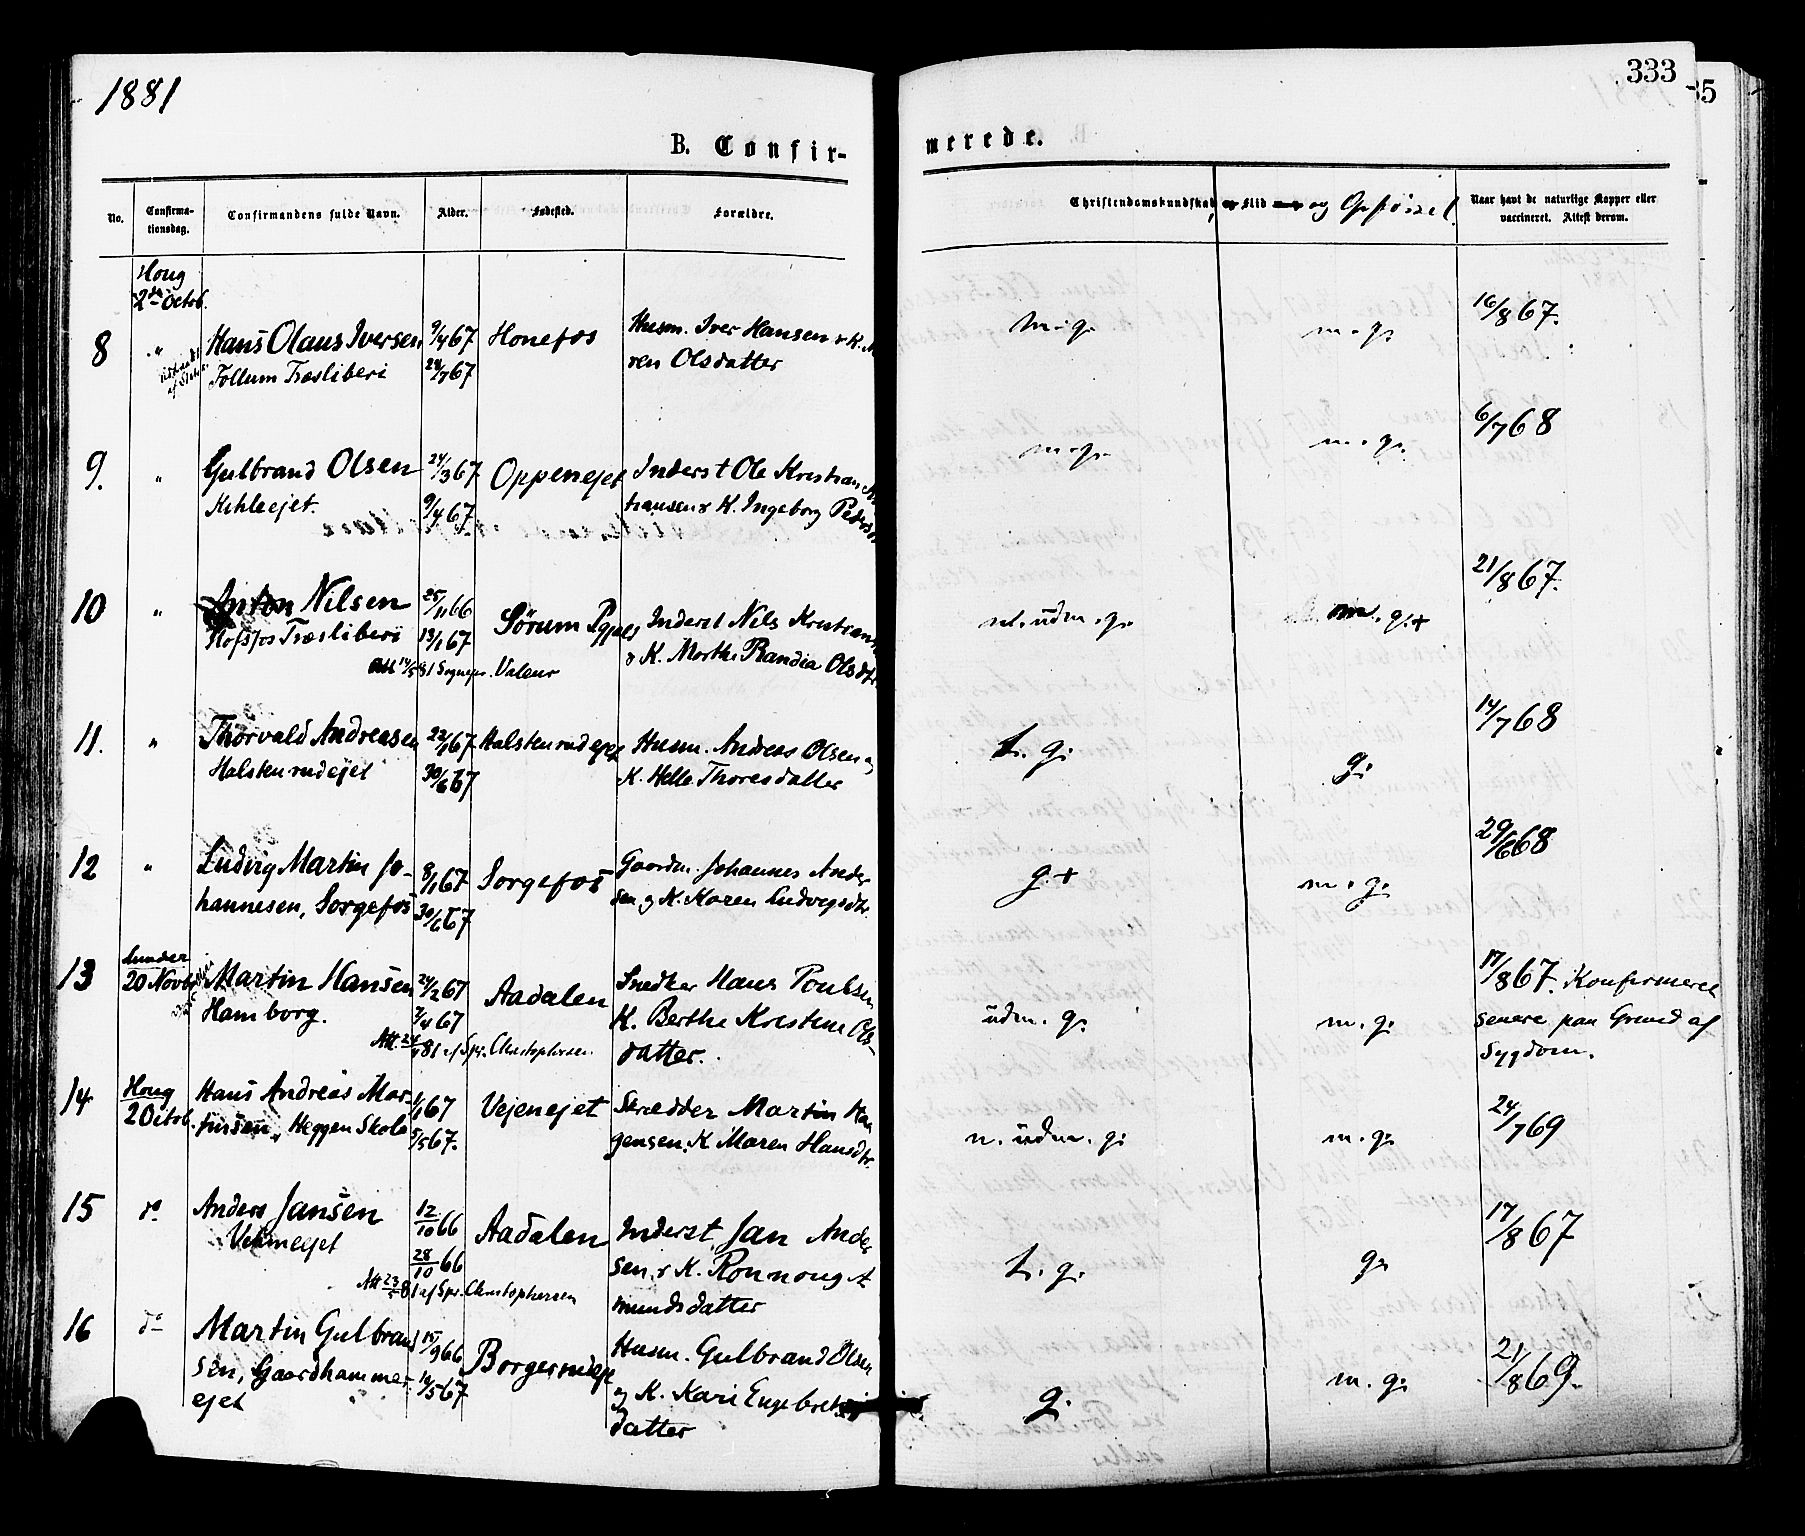 1881
333
35
B. Confir-
merede.
No.
Confirma-
tionsdag.
Confirmandens fulde Navn.
Alder.
Fødested.
Forældre.
Christendomskundskab, Flid og Opførsel
Naar havt de naturlige Kopper eller
vaccineret. Attest derom.
Houg
2den Octob.
8 " Hans Olaus Iversen 9/4 67 Honefos Husm. Iver Hansen & K. M m.g. m.g. 16/8 67.
Follum Træsliberi 24/7 67 ren Olsdatter
9. " Gulbrand Olsen 24/3 67 Oppenejet Inderst Ole Kristian m.g. m.g. 6/7 68
Kihleejet. 9/4 67. tiansen & K. Ingeborg Peders
10 " Anton Nilsen 25/11 66 Sørum Inderst Nils Kristians udm. g. m. g.+ 21/8 67.
Hofsfos Træsliberi 13/1 67 & K. Marthe Randia Olsdtr.
Att 14/5 81 Sognepr. Valeur
11. " Thorvald Andreasen 22/1 67 Halstenrudejet Husm. Andreas Olsen og t. g. g. 14/7 68
Halstenrudejet 30/6 67 K. Helle Thoresdatter
12 " Ludvig Martin Jo- 8/1 67 Sorgefos Gaardm. Johannes Ander g.+ m.g. 29/6 68
hannesen, Sorgefos 30/6 67 sen og K. Karen Ludvigsdtr.
13 Lunder
20 Novbr Martin Hansen 24/2 67 Aadalen Snedker Hans Poulsen udm. g. m.g. 17/8 67. Konfirmeret
Hamborg. 7/4 67 K. Berthe Kristine Ols- senere paa Grund af
Att. 81 af Spr. Christophersen datter. Sygdom.
14 Houg Hans Andreas Mar- 1/1 67 Vejenejet Skrædder Martin Hau n. udm. g. m.g. 24/7 69
2 Octob. tinsen, Heggen Skole 5/5 67. gensen. K. Maren Hansdtr.
15 do Anders Jansen 12/10 66 Aadalen Inderst Jan Ander t. g. g. 17/8 67
28/10 66 sen & K. Ronnoug A
Att 81 af Spr. Christophersen mundsdatter
16 do Martin Gulbrand 15/9 66 Borgerudejet Husm. Gulbrand Olsen g. m.g. 21/8 69.
sen, Gaardhammer- 19/5 67 og K. Kari Engebrets
ejet datter